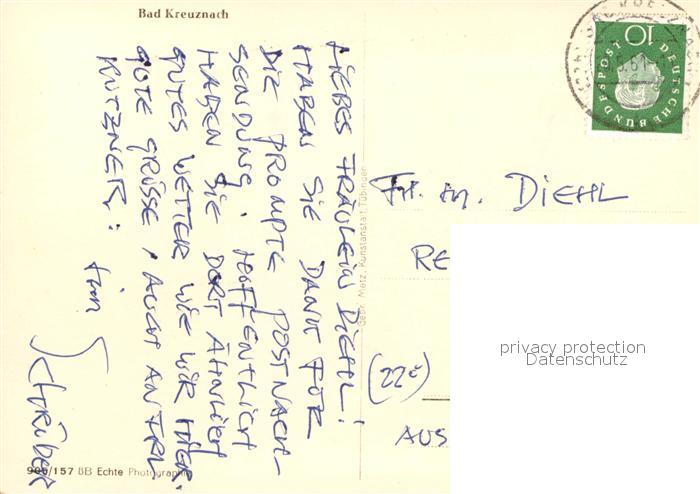 Bad Kreuznach
LIEBES FRÄULEIN DIEHL!
HABEN SIE DANK FÜR
DIE PROMPTE POSTNACH-
SENDUNG. HOFFENTLICH
HABEN SIE DORT ÄHNLICH
GUTES WETTER WIE WIR HIER.
GUTE GRÜSSE, AUCH AN FRL.
KÜTZNER:
Ihr
Schreiber
906/157 BB Echte Photographie
Gebr. Metz, Kunstanstalt, Tübingen
DEUTSCHE BUNDESPOST
10
Frl. M. DIEHL
RE
(22c)
AUS
privacy protection
Datenschutz